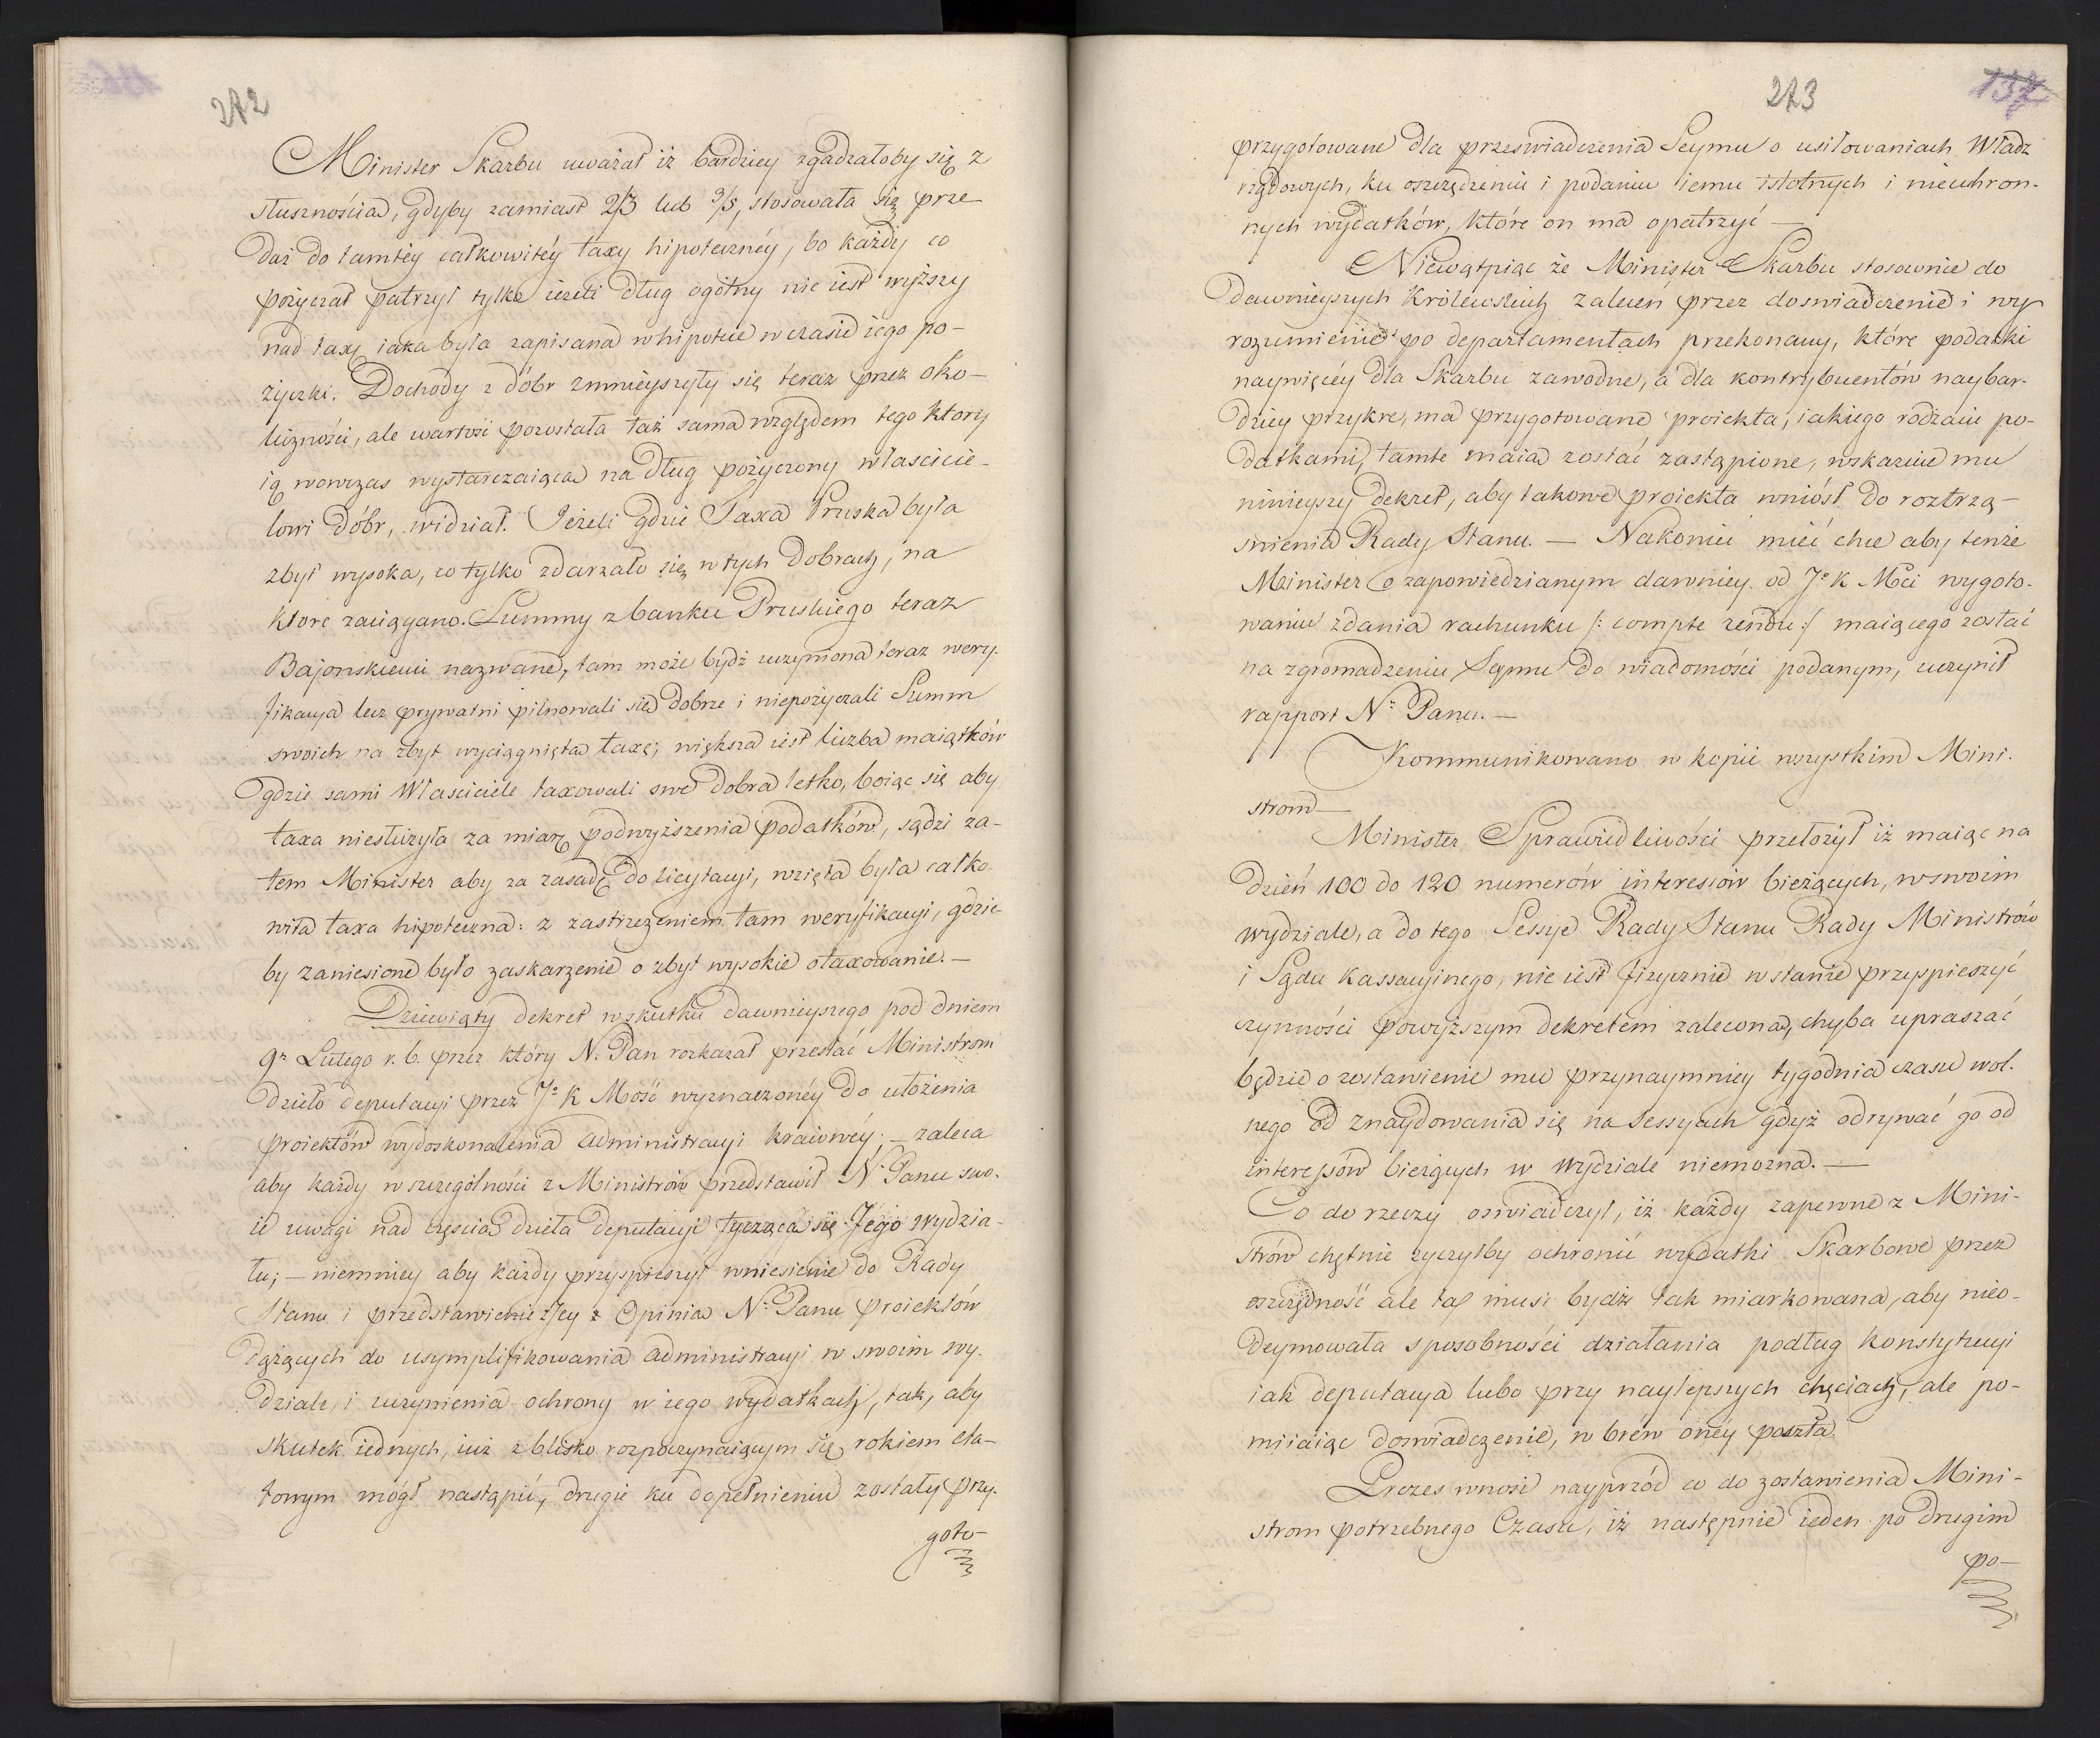 272
Minister Skarbu uważał iż bardziey zgadzałoby się z
słusznościa, gdyby zamiast 2/3 lub 3/5, stosowała się prze-
daż do tamtéy całkowitéy taxy hipotecznéy, bo każdy co
pożyczał patrzył tylko ieżeli dług ogólny nie iest wyższy
nad taxę iaka była zapisana w hipotece w czasie iego po-
życzki. Dochody z dóbr zmnieyszyły się teraz przez oko-
liczności, ale wartość pozostała taż sama względem tego ktory
ią wowczas wystarczaiąca na dług pożyczony właścicie-
lowi dóbr, widział. Ieżeli gdzie Taxa Pruska była
zbyt wysoka, co tylko zdarzało się w tych Dobrach, na
ktore zaciągano Summy z banku Pruskiego teraz
Bajonskiemi nazwane, tam może bydź uczyniona teraz wery-
fikacya lecz prywatni pilnowali się dobrze i niepożyczali Summ
swoich na zbyt wyciągnięta taxę; większa iest liczba maiątków
gdzie sami Właściciele taxowali swe dobra letko, boiąc się aby
taxa niesłużyła za miarę podwyższenia podatków, sądzi za-
tem Minister aby za zasadę do licytacyi, wzięta była całko
wita taxa hipoteczna: z zastrzeżeniem tam weryfikacyi, gdzie-
by zaniesione było zaskarzenie o zbyt wysokie otaxowanie. —
Dziewiąty dekret w skutku dawnieyszego pod dniem
9n Lutego r. b. przez który N. Pan rozkazał przesłać Ministrom
dzieło deputacyi przez Jo K Mość wyznaczonéy do ułożenia
proiektów wydoskonalenia administracyi kraiowéy; — zaleca
aby każdy w szczególności z Ministrów przedstawił N. Panu swo-
ie uwagi nad częscia dzieła deputacyi tycząca się Jego wydzia-
łu; — niemniey aby każdy przyspieszył wniesienie do Rady
Stanu i przedstawienie z Jey z Opinia N. Panu proiektów
dążących do usymplifikowania administracyi w swoim wy-
dziale, i uczynienia ochrony w iego wydatkach, tak, aby
skutek iednych, iuż z blisko rozpoczynaiącym się rokiem eta-
towym mógł nastąpić, drugie ku dopełnieniu zostały przy-
goto-
273
137
przygotowane dla przeswiadczenia Seymu o usiłowaniach Władz
rządowych, ku oszczędzeniu i podaniu iemu istotnych i nieuchron-
nych wydatków, które on ma opatrzyć —
Niewątpiąc że Minister Skarbu stosownie do
dawnieyszych Królewskich zaleceń przez doswiadczenie i wy
rozumienie po departamentach przekonany, które podatki
naywięcéy dla Skarbu zawodne, a dla kontrybuentów naybar-
dziey przykre, ma przygotowane proiekta, iakiego rodzaiu po-
datkami, tamte maia zostać zastąpione, wskazuie mu
ninieyszy dekret, aby takowe proiekta wniósł do roztrzą-
snienia Rady Stanu. — Nakoniec mieć chce aby tenże
Minister o zapowiedzianym dawniey od Jo K Mci wygoto-
waniu zdania rachunku /: compte rendu :/ maiącego zostać
na zgromadzeniu Seymu do wiadomości podanym, uczynił
rapport N. Panu. —
Kommunikowano w kopii wszystkim Mini-
strom —
Minister Sprawiedliwości przełożył iż maiąc na
dzień 100 do 120 numerów interessów bieżących, w swoim
wydziale, a do tego Sessye Rady Stanu Rady Ministrów
i Sądu Kassacyinego, nie iest fizycznie w stanie przyspieszyć
czynności powyższym dekretem zalecona, chyba upraszać
będzie o zostawienie mu przynaymniey tygodnia czasu wol-
nego od znaydowania się na Sessyach gdyż odrywać go od
interessów bieżących w wydziale niemożna. —
Co do rzeczy oświadczył, iż każdy zapewne z Mini-
strów chętnie życzyłby ochronić wydatki Skarbowe przez
oszczędność ale ta musi bydź tak miarkowana, aby nieo-
deymowała sposobności działania podług Konstytucyi
iak deputacya lubo przy naylepszych chęciach, ale po-
miiaiąc doswiadczenie, w brew onéy poszła.
Prezes wnosi nayprzód co do zostawienia Mini-
strom potrzebnego Czasu, iż następnie ieden po drugim
po-